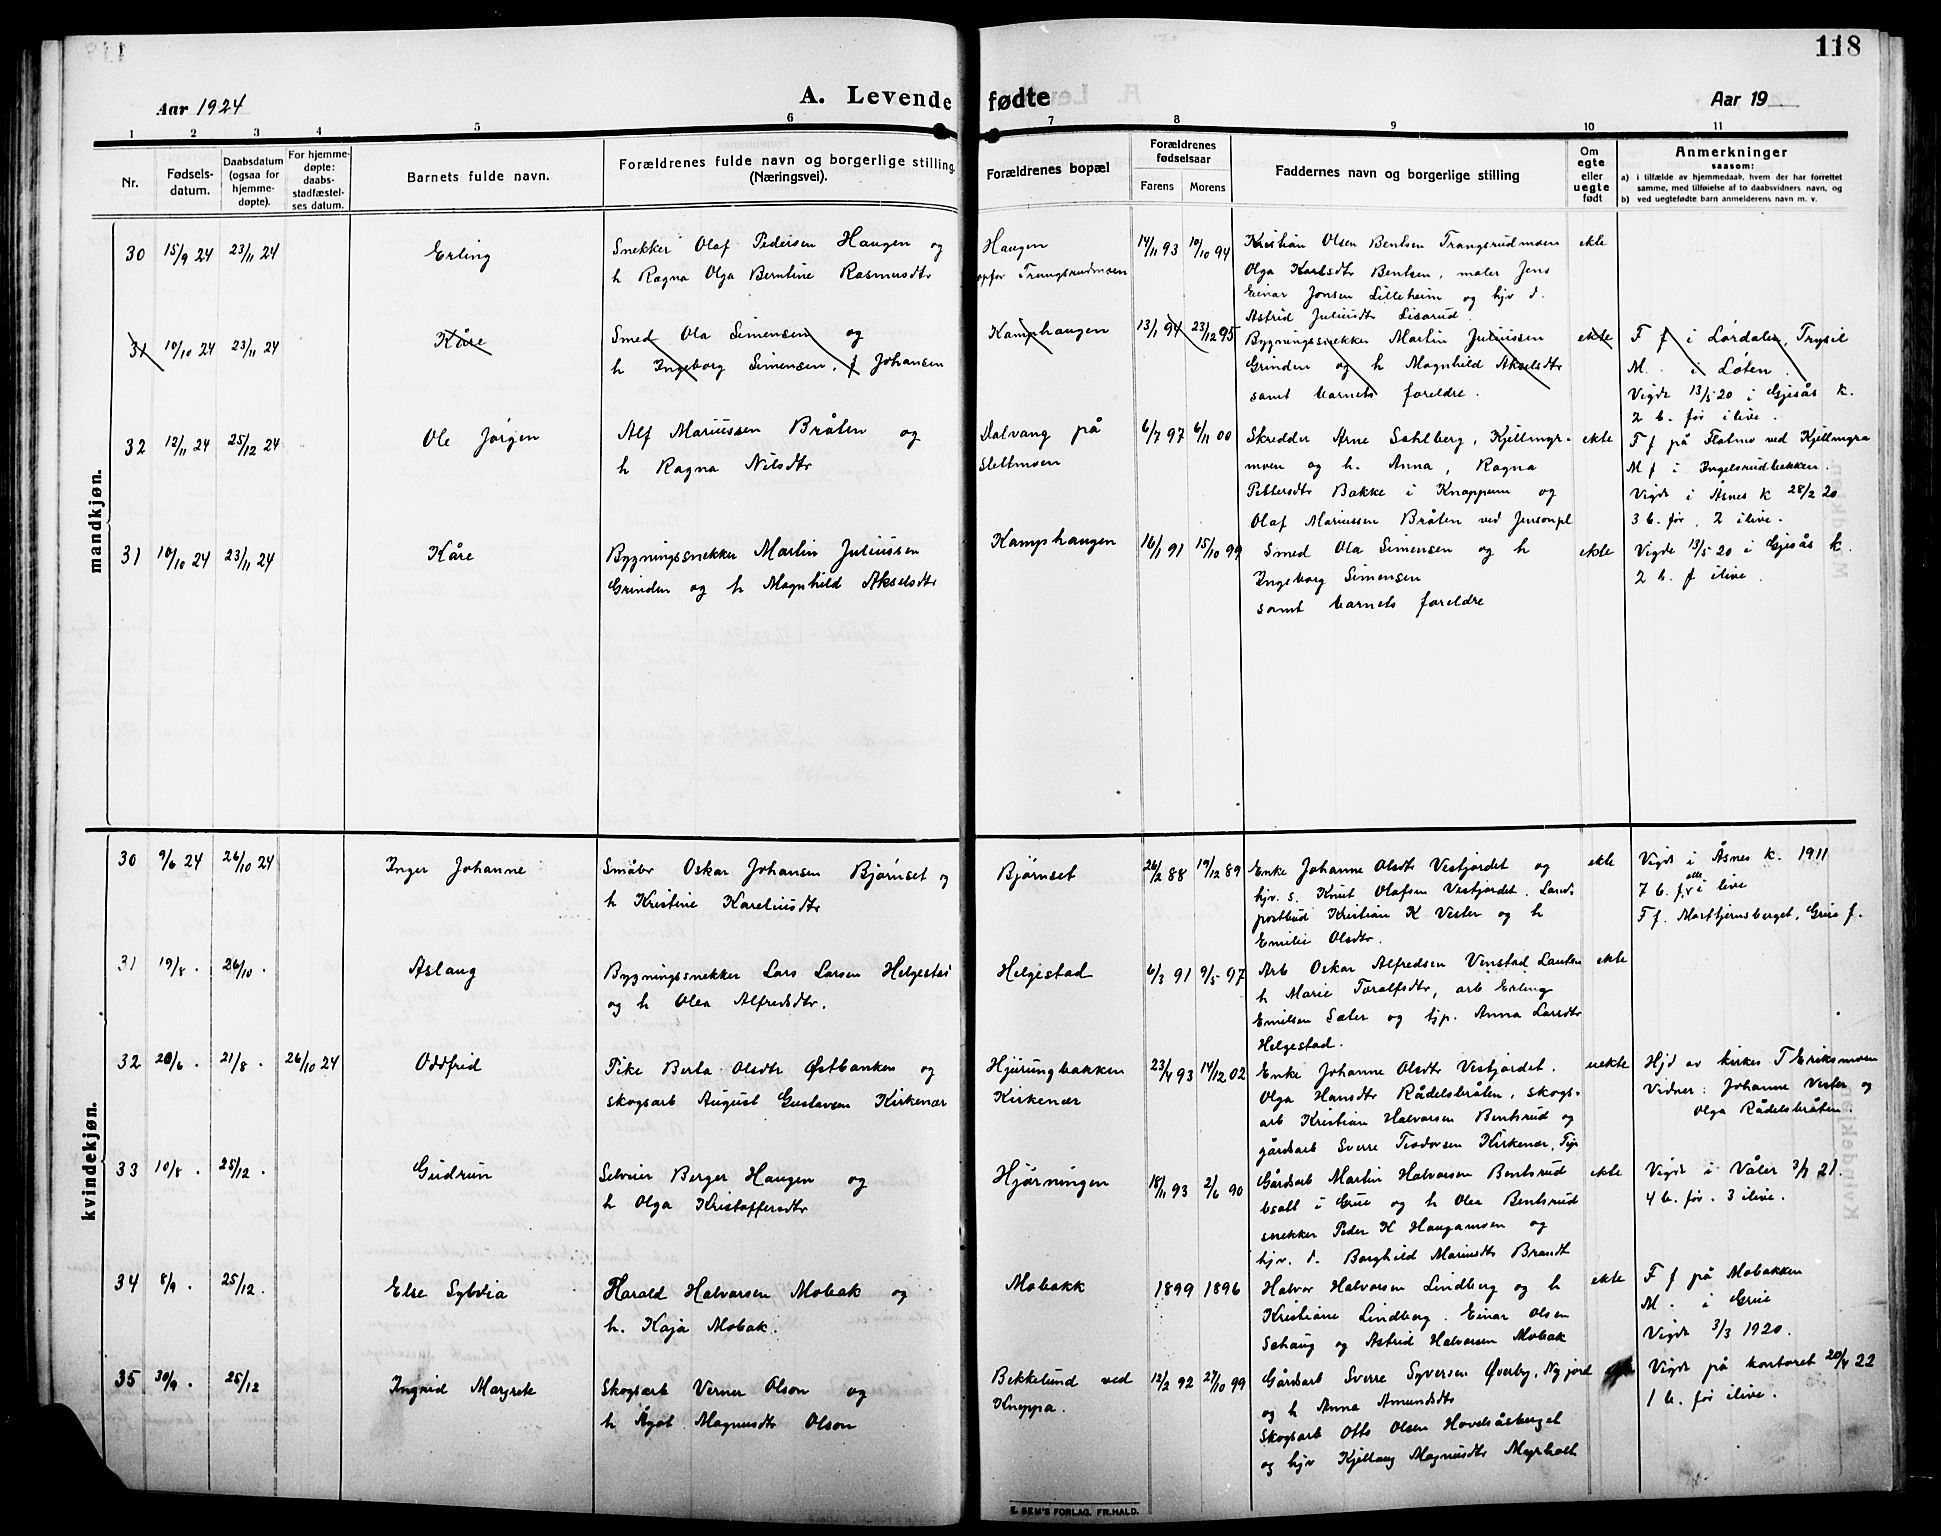 118
Aar 1924
A. Levende fødte
Aar 19
1 2 3 4 5 6 7 8 9 10 11
Nr.
Fødsels-
datum.
Daabsdatum
(ogsaa for
hjemme-
døpte).
For hjemme-
døpte:
daabs-
stadfæstel-
ses datum.
Barnets fulde navn.
Forældrenes fulde navn og borgerlige stilling
(Næringsvei).
Forældrenes bopæl
Forældrenes
fødselsaar
Farens Morens
Faddernes navn og borgerlige stilling
Om
egte
eller
uegte
født
Anmerkninger
saasom:
a) i tilfælde av hjemmedaab, hvem der har forrettet
samme, med tilføielse af to daabsvidners navn, og
b) ved uegtefødte barn anmelderens navn m. v.
mandkjøn.
30 15/9 24 23/11 24 Erling
Snekker Olaf Pedersen Haugen og
h Ragna Olga Berntine Rasmusdtr
Haugen
opfor Trangsrudmoen
14/11 93 10/10 94
Kristian Olsen Bentsen Trangsrudmoen
Olga Karlsdtr Bentsen, maler Jens
Einar Jonsen Lilleheim og hjv d.
Astrid Juliusdtr Lisarud
ekte
31 10/10 24 23/11 24 Kåre
Smed Ola Simensen og
h Ingeborg Simensen, f Johansen
Kamphaugen
13/1 94 23/12 95
Bygningssnekker Martin Juliussen
Grinden og h Magnhild Akselsdtr
samt barnets foreldre.
ekte
F f i Lørdalen, Trysil
M. i Løten.
Vigde 13/5 20 i Gjesås k.
2 b. før ilive.
32 12/11 24 25/12 24 Ole Jørgen
Alf Mariussen Bråten og
h Ragna Nilsdtr
Dalvang på
Slettmoen
6/7 97 6/11 00
Skredder Arne Sahlberg, Kjellmyr-
moen og h. Anna, Ragna
Pettersdtr Bakke i Knappum og
Olaf Mariussen Bråten ved Jensonpl
ekte
F f på Flatmo ved Kjellmyra
M f i Ingelsrudbakken.
Vigde i Åsnes k 28/2 20
3 b. før, 2 ilive.
31 10/10 24 23/11 24 Kåre
Bygningssnekker Martin Juliussen
Grinden og h Magnhild Akselsdtr
Kamphaugen
16/1 91 15/10 99
Smed Ola Simensen og h
Ingeborg Simensen
samt barnets foreldre
ekte
Vigde 13/5 20 i Gjesås k.
2 b. f ilive.
kvindekjøn.
30 9/6 24 26/10 24 Inger Johanne
Småbr Oskar Johansen Bjørnset og
h Kristine Kareliusdtr
Bjørnset
26/2 88 19/12 89
Enke Johanne Olsdtr Vestjordet og
hjv. s. Knut Olafsen Vestjordet. Land-
postbud Kristian K Vester og h
Emilie Olsdtr.
ekte
Vigde i Åsnes k. 1911
7 b. f, alle i live
F f. Morttjernsberget, Grue f.
31 19/8 . 26/10 . Aslaug
Bygningssnekker Lars Larsen Helgestad
og h Olea Alfredsdtr.
Helgestad
6/3 91 9/5 97
Arb Oskar Alfredsen Vinstad Lauten
h Marie Toralfsdtr, arb Erling
Emilsen Sæter og hjp. Anna Larsdtr
Helgestad.
ekte
32 20/6 . 21/8 . 26/10 24 Oddfrid
Pike Berta Olsdtr Østbanken og
skogsarb August Gustavsen Kirkenær
Hjørungbakken
Kirkenær
23/4 93 14/12 02
Enke Johanne Olsdtr Vestjordet.
Olga Hansdtr Rådelsbråten, skogs-
arb Kristian Halvorsen Bentsrud og
gårdsarb Sverre Teodorsen Kirkenær,
uekte
Hjd av kirkes T Eriksmoen
Vidner: Johanne Vester og
Olga Rådelsbråten.
33 10/8 . 25/12 . Gudrun
Selveier Berger Haugen og
h Olga Kristoffersdtr
Hjørningen
18/11 93 2/6 90
Gårdsarb Martin Halvorsen Bentsrud
bsatt i Grue og h Olea Bentsrud
snekker Peder K Haugamoen og
hjv. d. Borghild Mariusdtr Brandt
ekte
Vigde i Våler 3/7 21.
4 b. før. 3 ilive.
34 8/9 . 25/12 . Else Sylvia
Harald Halvorsen Mobak og
h. Kaja Mobak.
Mobakk
1899 1896
Halvor Halvorsen Lindberg og h
Kristiane Lindberg. Einar Olsen
Sehaug og Astrid Halvorsen Mobak
ekte
F f på Mobakken
M. i Grue
Vigde 3/3 1920.
35 30/9 . 25/12 Ingrid Margrete
Skogsarb Verner Olson og
h Ågot Magnusdtr Olson
Bekkelund ved
Kneppa.
12/2 92 27/10 99
Gårdsarb Sverre Syversen Øverby, Nyjord
og h Anna Amundsdtr
Skogsarb Otto Olsen Hovelsåsberget
og hjv Kjellaug Magnusdtr Myrholt
Vigde på kontoret 20/4 22
1 b. før ilive.
E. SEM'S FORLAG. FR.HALD.